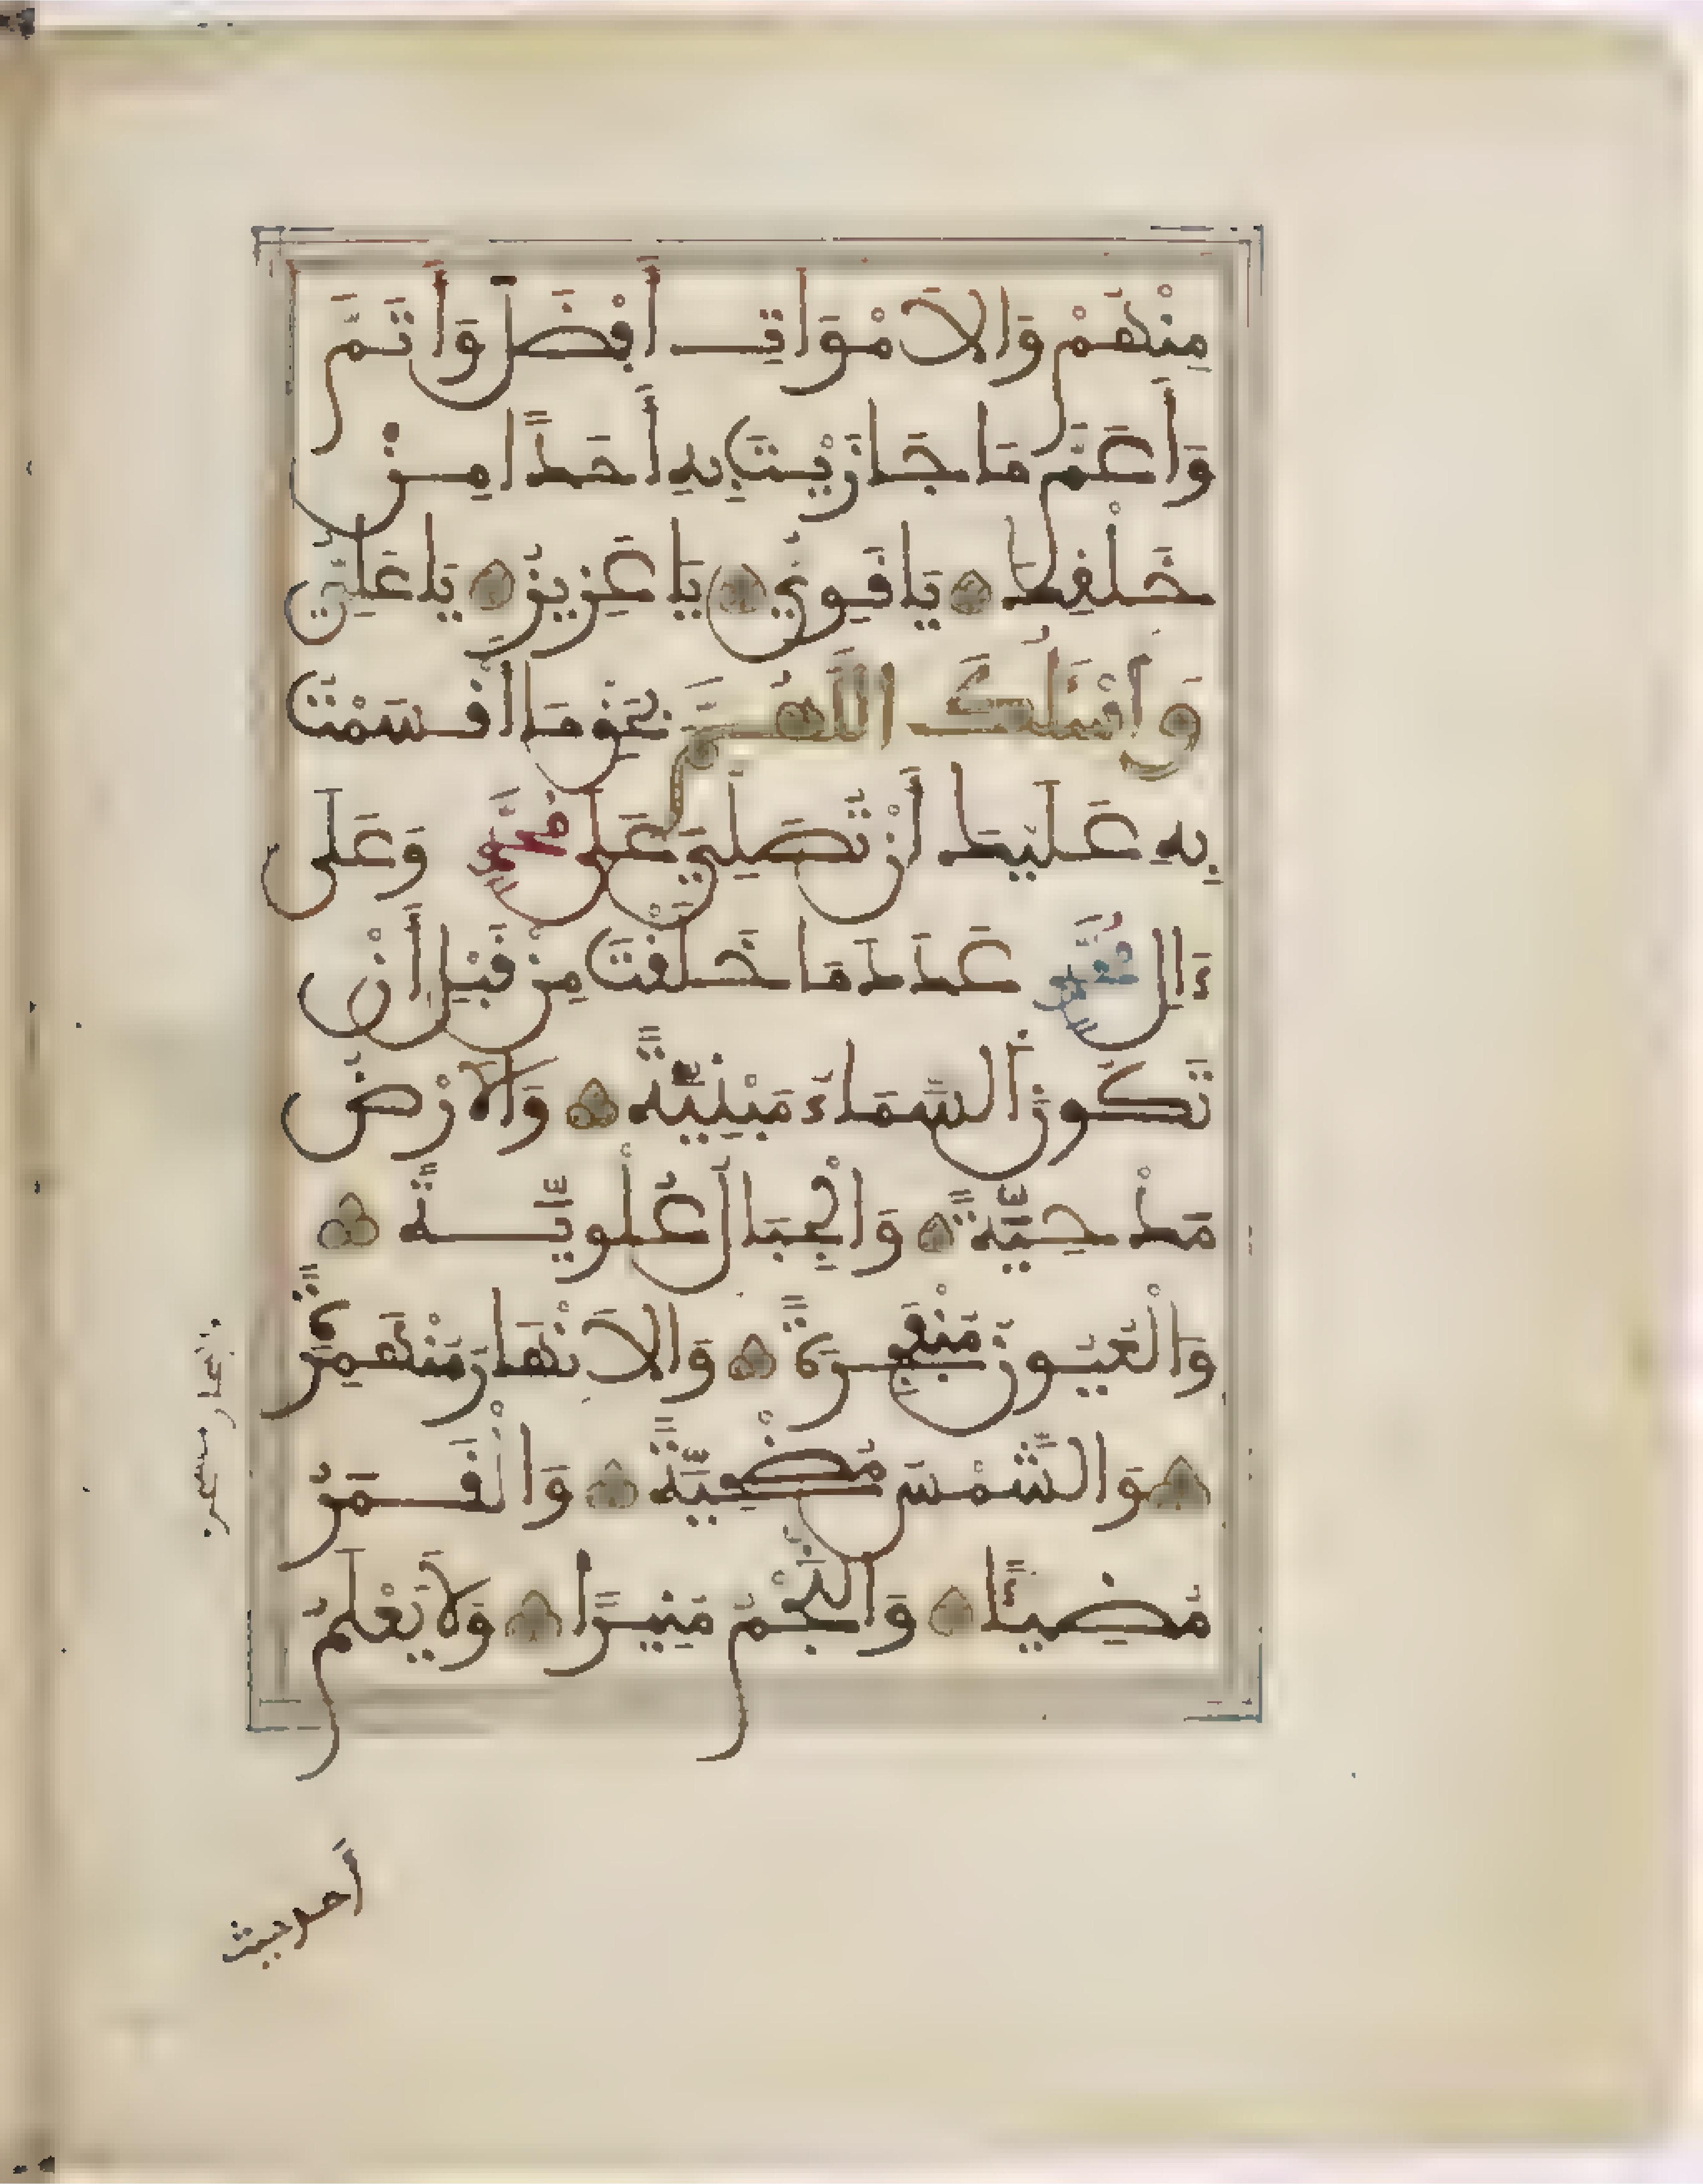 مِنْهُمْ وَالَامْوَاتِ أَفْضَلَ وَأَتَمَّ
وَأَعَمَّ مَا جَازَيْتَ بِهِ أَحَدًا مِنْ
خَلْقِكَ يَا قَوِيُّ يَا عَزِيزُ يَا عَلِيُّ
وَأَسْئَلُكَ اللَّهُمَّ بِحَقِّ مَا أَقْسَمْتَ
بِهِ عَلَيْكَ أَنْ تُصَلِّيَ عَلَى مُحَمَّدٍ وَعَلَى
ءَالِ مُحَمَّدٍ عَدَدَ مَا خَلَقْتَ مِنْ قَبْلِ أَنْ
تَكُونَ السَّمَاءُ مَبْنِيَّةً وَالَارْضُ
مَدْحِيَّةً وَالْجِبَالُ عُلْوِيَّةً
وَالْعُيُونُ مُنْفَجِرَةً وَالَانْهَارُ مُنْهَمِرَةً
وَالشَّمْسُ مُضْحِيَّةً وَالْقَمَرُ
مُضِيئًا وَالنَّجْمُ مُنِيرًا وَلَا يَعْلَمُ
أحد حيث